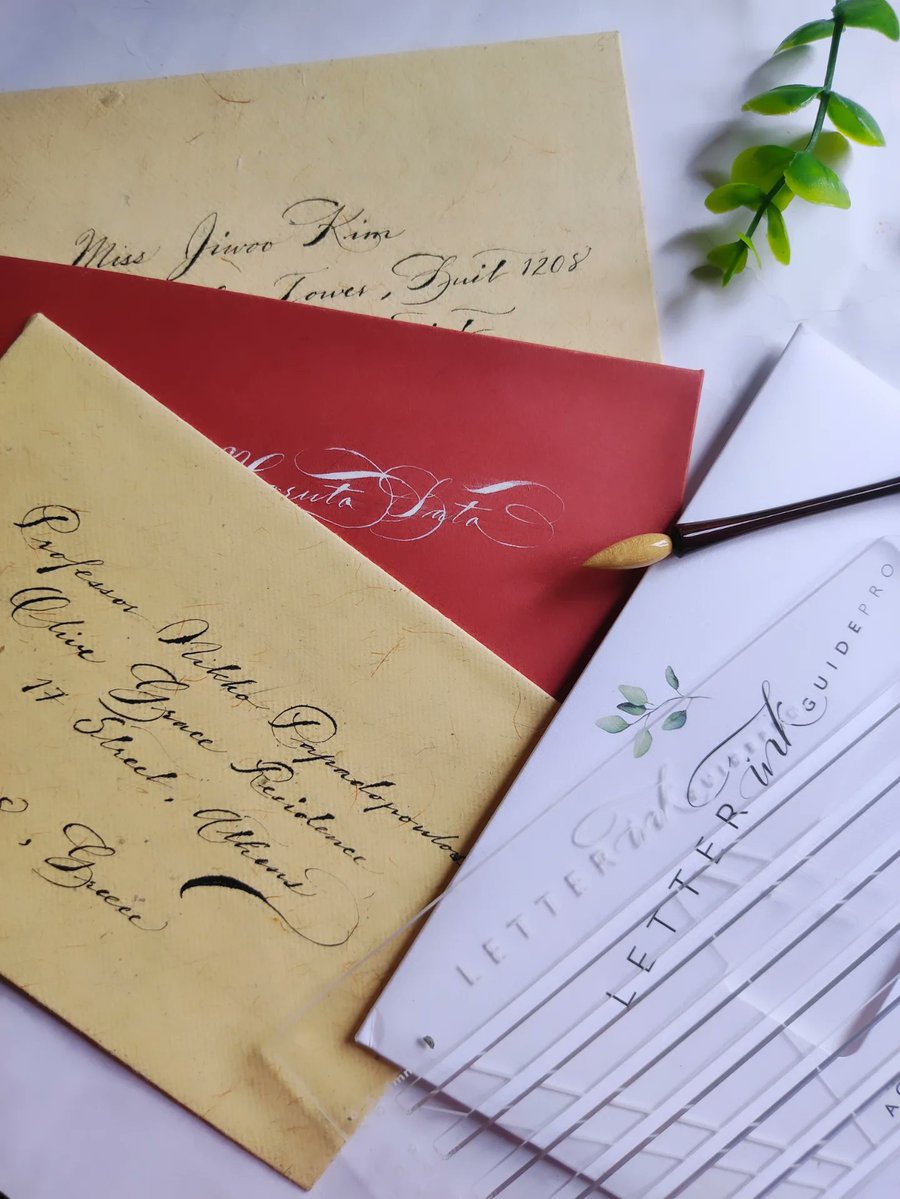 Miss Jiwoo Kim
Tower, Suit 1208
Sato
Professor Nikko Papadopoulos
Olive Grace Residence
17 Street, Athens
, Greece
LETTER ink GUIDEPRO